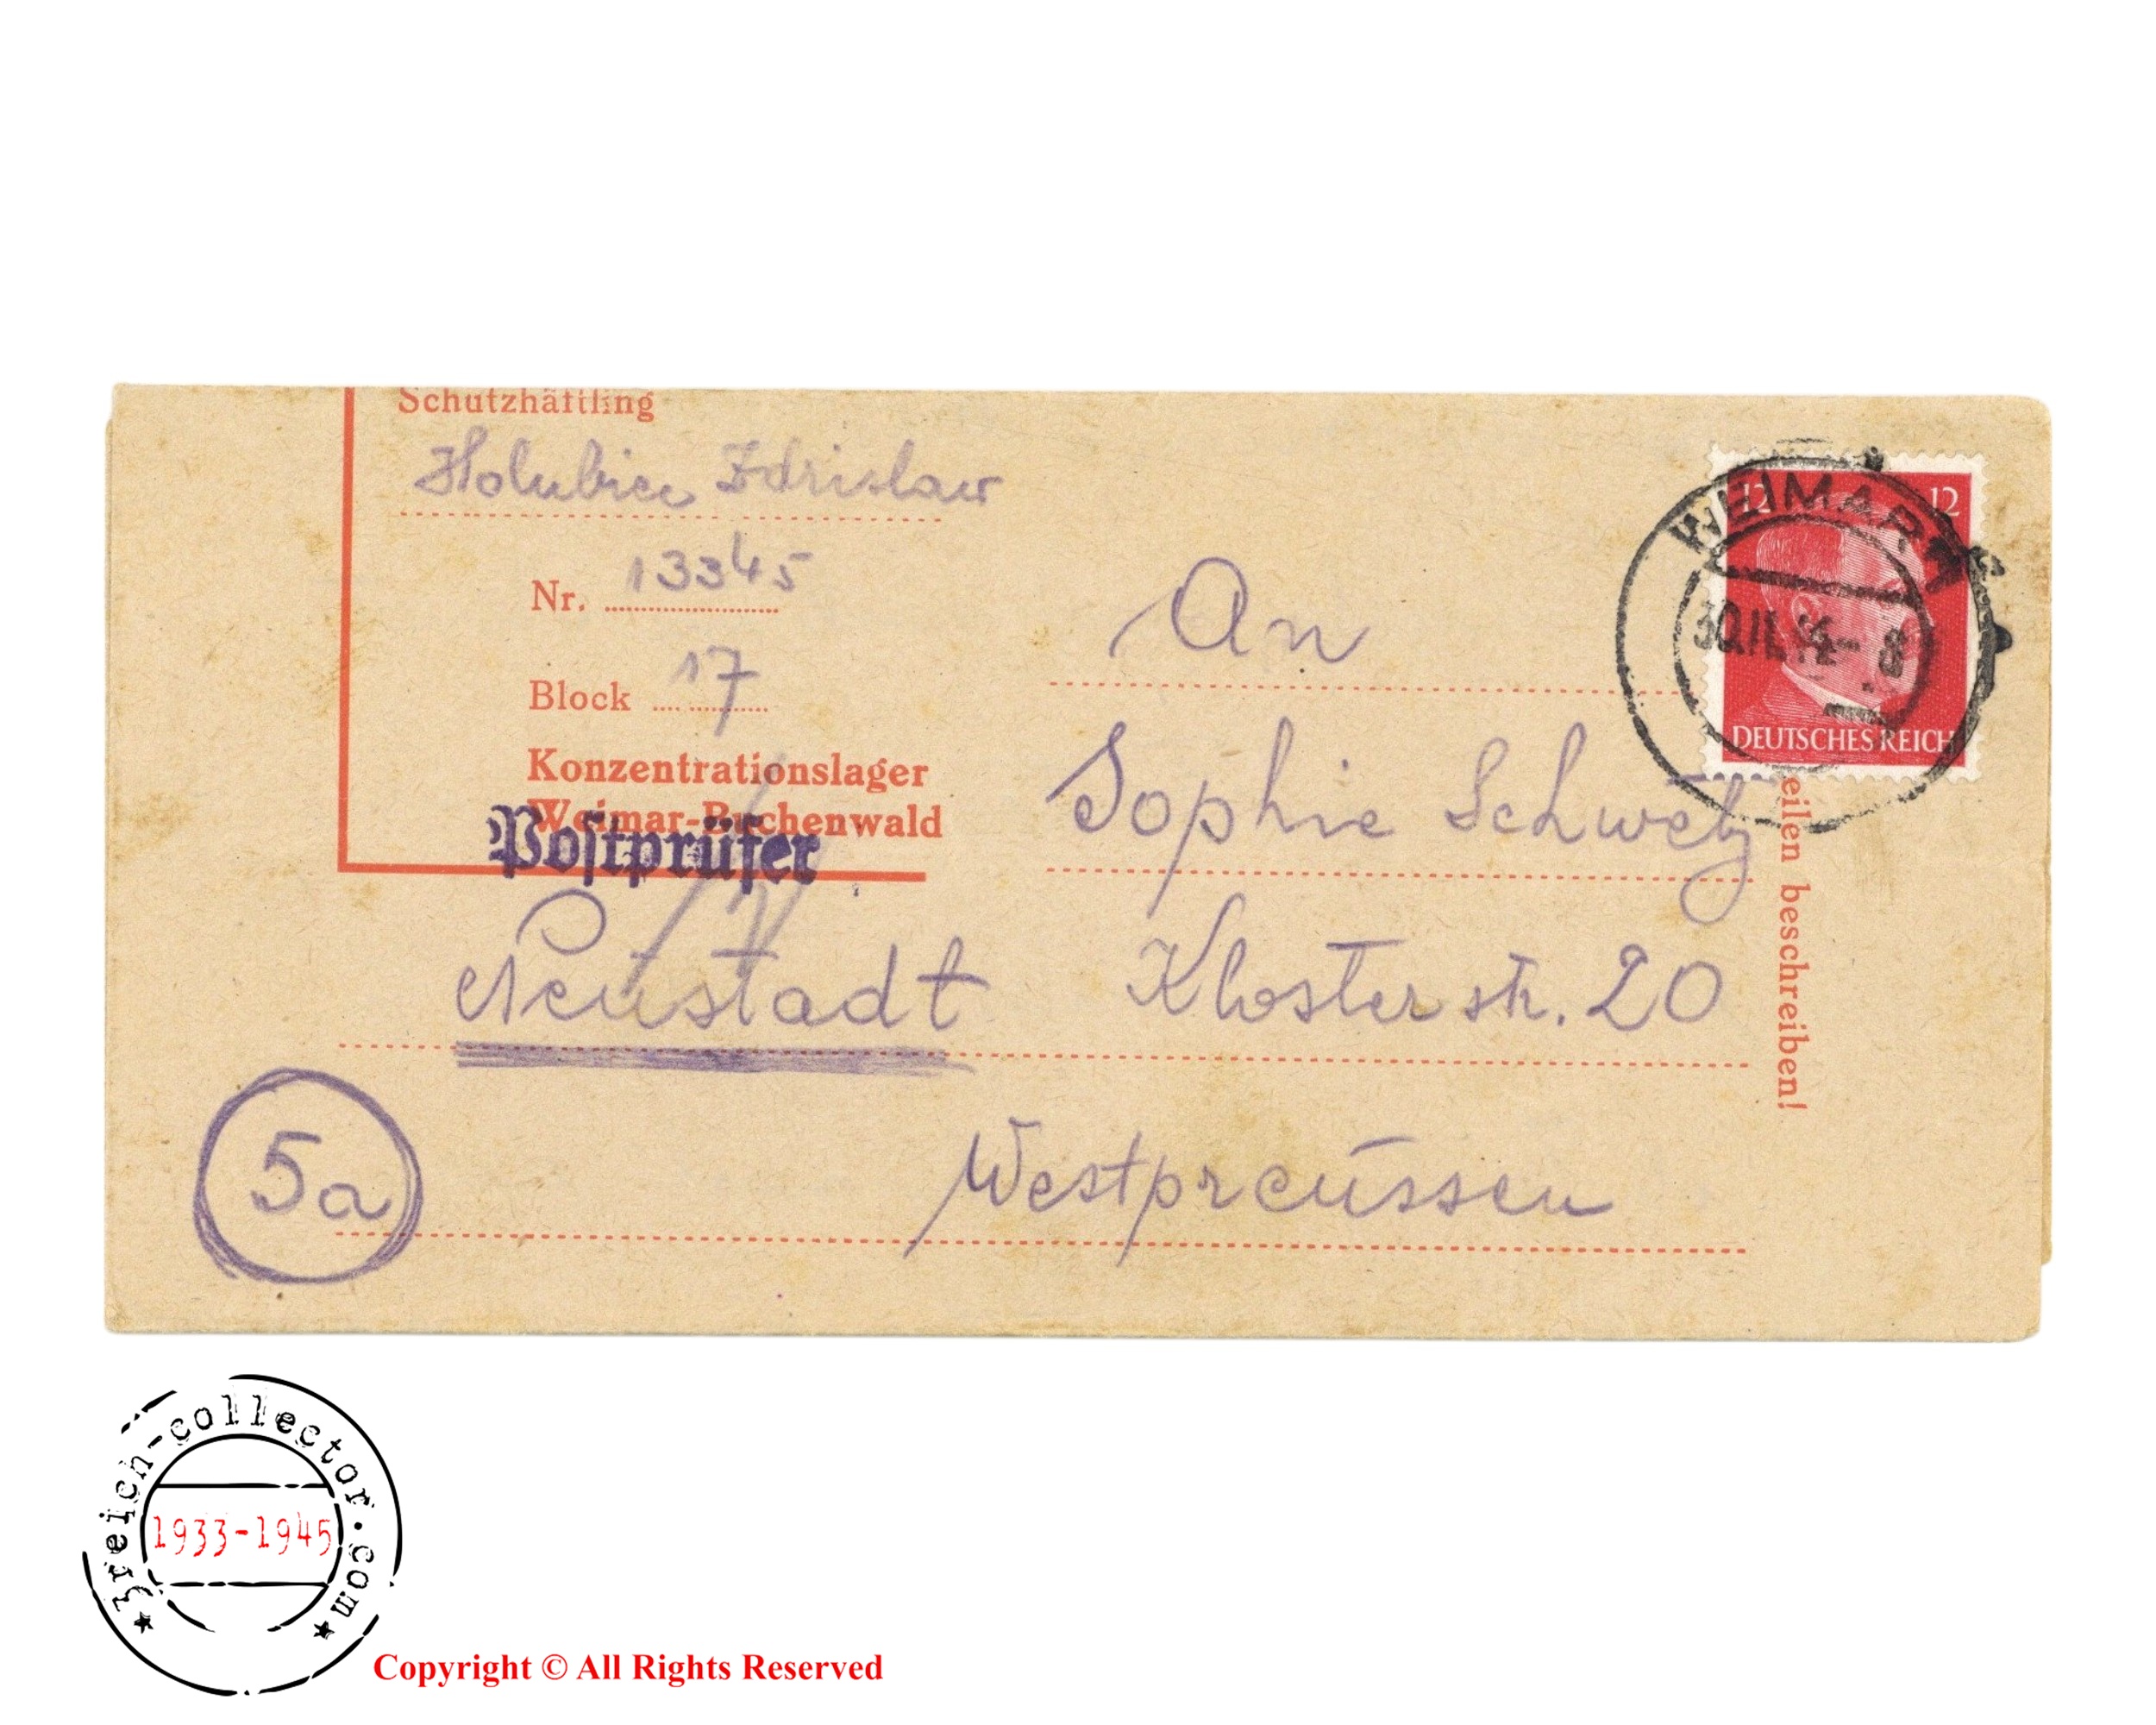 Schutzhäftling
Holubice Zdrislaw
Nr. 13345
Block 17
Konzentrationslager
Weimar-Buchenwald
Postprüfer
12 12
WEIMAR
8
DEUTSCHES REICH
An
Sophie Schwetz
Neustadt Klosterstr. 20
5a
Westpreussen
eilen beschreiben!
3reich-collector.com
1933-1945
Copyright © All Rights Reserved